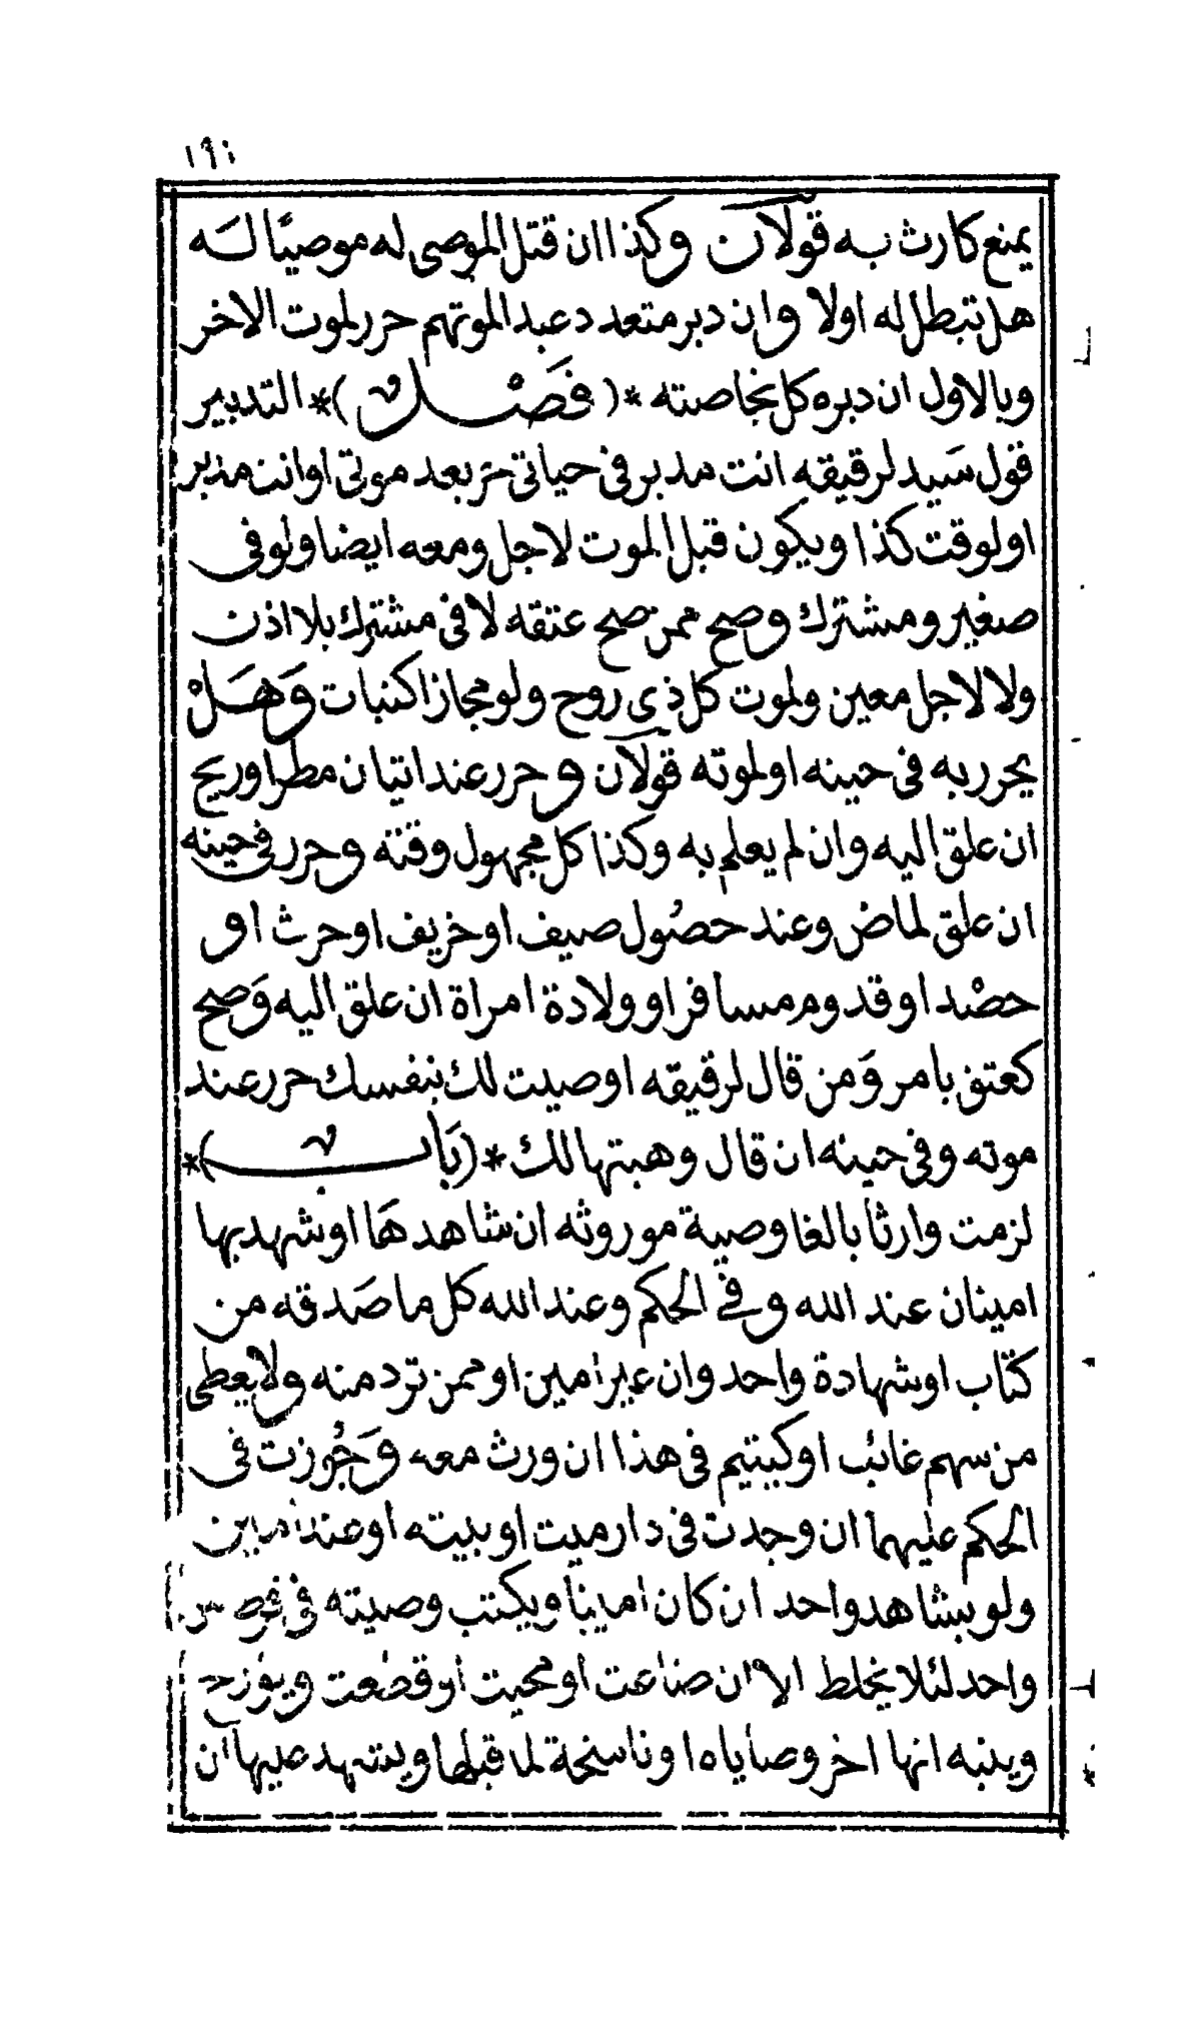 ١٩١
يمنع كارث به قولان وكذا ان قتل الموصى له موصيا له
هل تبطل له اولا وان دبر متعدد عبدا لموتهم حرر لموت الاخر
وبالاول ان دبره كل بخاصته *( فَصْل )* التدبير
قول سَيد لرقيقه انت مدبر فى حياتى حر بعد موتى او انت مدبر
او لوقت كذا ويكون قبل الموت لاجل ومعه ايضا ولو فى
صغير ومشترك وصح ممن صح عتقه لا فى مشترك بلا اذن
ولا لاجل معين ولموت كل ذى روح ولو مجازا كنبات وَهَلْ
يحرر به فى حينه او لموته قولان وحرر عند اتيان مطر او ريح
ان علق اليه وان لم يعلم به وكذا كل مجهول وقته وحرر فى حينه
ان علق لماض وعند حصُول صيف او خريف او حرث او
حصْد او قدوم مسافر او ولادة امراة ان علق اليه وَصح
كعتق بامر وَمن قال لرقيقه اوصيت لك بنفسك حرر عند
موته وفى حينه ان قال وهبتها لك *( بَاب )*
لزمت وارثا بالغا وصية موروثه ان شاهدهَا او شهد بها
امينان عند الله وفى الحكم وعند الله كل ما صَدقه من
كتاب او شهادة واحد وان غير امين او ممن ترد منه ولا يعطى
من سهم غائب او كيتيم فى هذا ان ورث معه وَجُوزت فى
الحكم عليهما ان وجدت فى دار ميت او بيته او عند امين
ولو بشاهد واحد ان كان امينا ويكتب وصيته فى
واحد لئلا يخلط الا ان ضاعت او محيت او قطعت ويؤرخ
وينبه انها اخر وصاياه او ناسخة لما قبلها ويشهد عليها ان